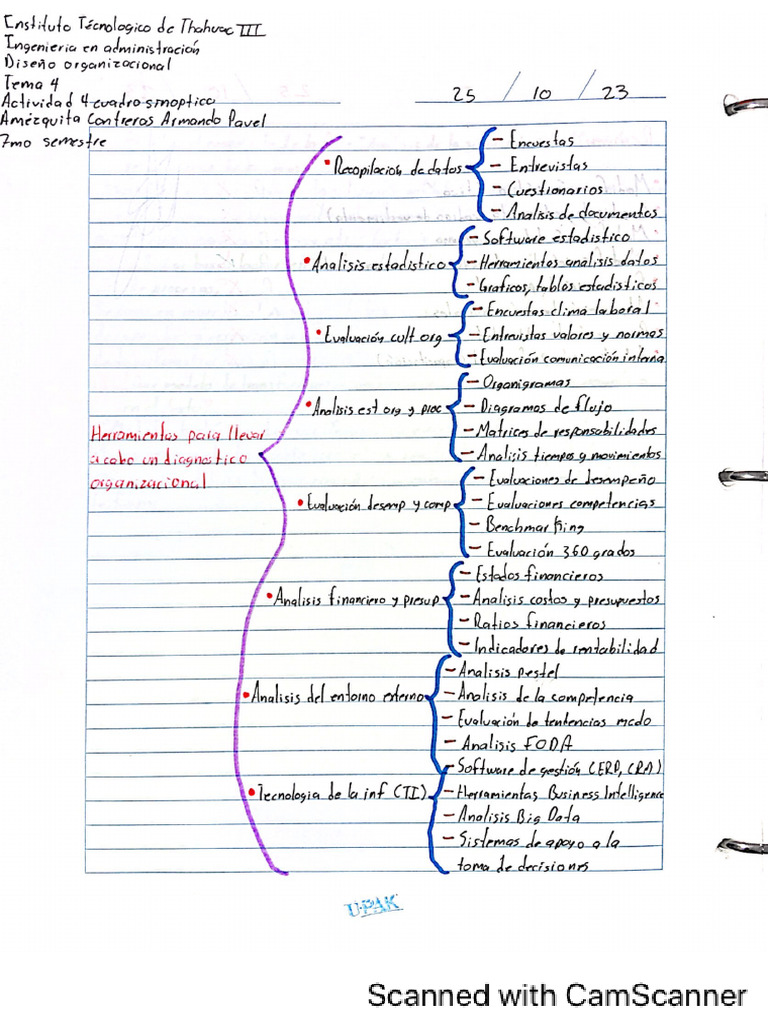 Instituto Técnologico de Tlahuac III
Ingenieria en administración
Diseño organizacional
Tema 4
Actividad 4 cuadro sinoptico
Amézquita Contreras Armando Pavel
7mo semestre
25 / 10 / 23
Herramientas para llevar
a cabo un diagnostico
organizacional
• Recopilación de datos
- Encuestas
- Entrevistas
- Cuestionarios
- Analisis de documentos
• Analisis estadistico
- Software estadistico
- Herramientas analisis datos
- Graficos, tablas estadisticos
• Evaluación cult org
- Encuestas clima laboral
- Entrevistas valores y normas
- Evaluación comunicación interna
• Analisis est org y proc
- Organigramas
- Diagramas de flujo
- Matrices de responsabilidades
- Analisis tiempos y movimientos
• Evaluación desemp y comp
- Evaluaciones de desempeño
- Evaluaciones competencias
- Benchmarking
- Evaluación 360 grados
• Analisis financiero y presup
- Estados financieros
- Analisis costos y presupuestos
- Ratios financieros
- Indicadores de rentabilidad
• Analisis del entorno externo
- Analisis pestel
- Analisis de la competencia
- Evaluación de tendencias mcdo
- Analisis FODA
• Tecnologia de la inf (TI)
- Software de gestión (ERP, CRA)
- Herramientas Business Intelligence
- Analisis Big Data
- Sistemas de apoyo a la
toma de decisiones
U·PAK
Scanned with CamScanner